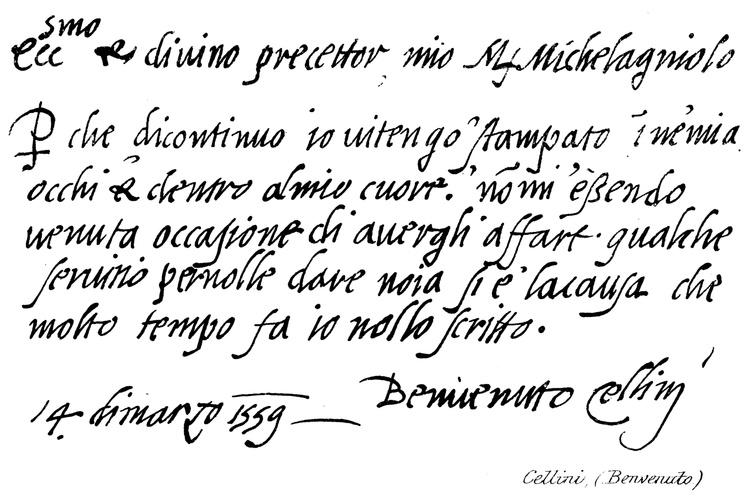 Ecc^smo & divino precettor mio M Michelagniolo
P che dicontinuo io vitengo stampato ĩ ne mia
occhi & dentro almio cuore. nõ mi eßendo
venuta occasione di avergli affare qualche
servitio pernolle dare noia si e lacausa che
molto tempo fa io nollo scritto.
14 dimarzo 1559
Benvenuto Cellini
Cellini, (Benvenuto)